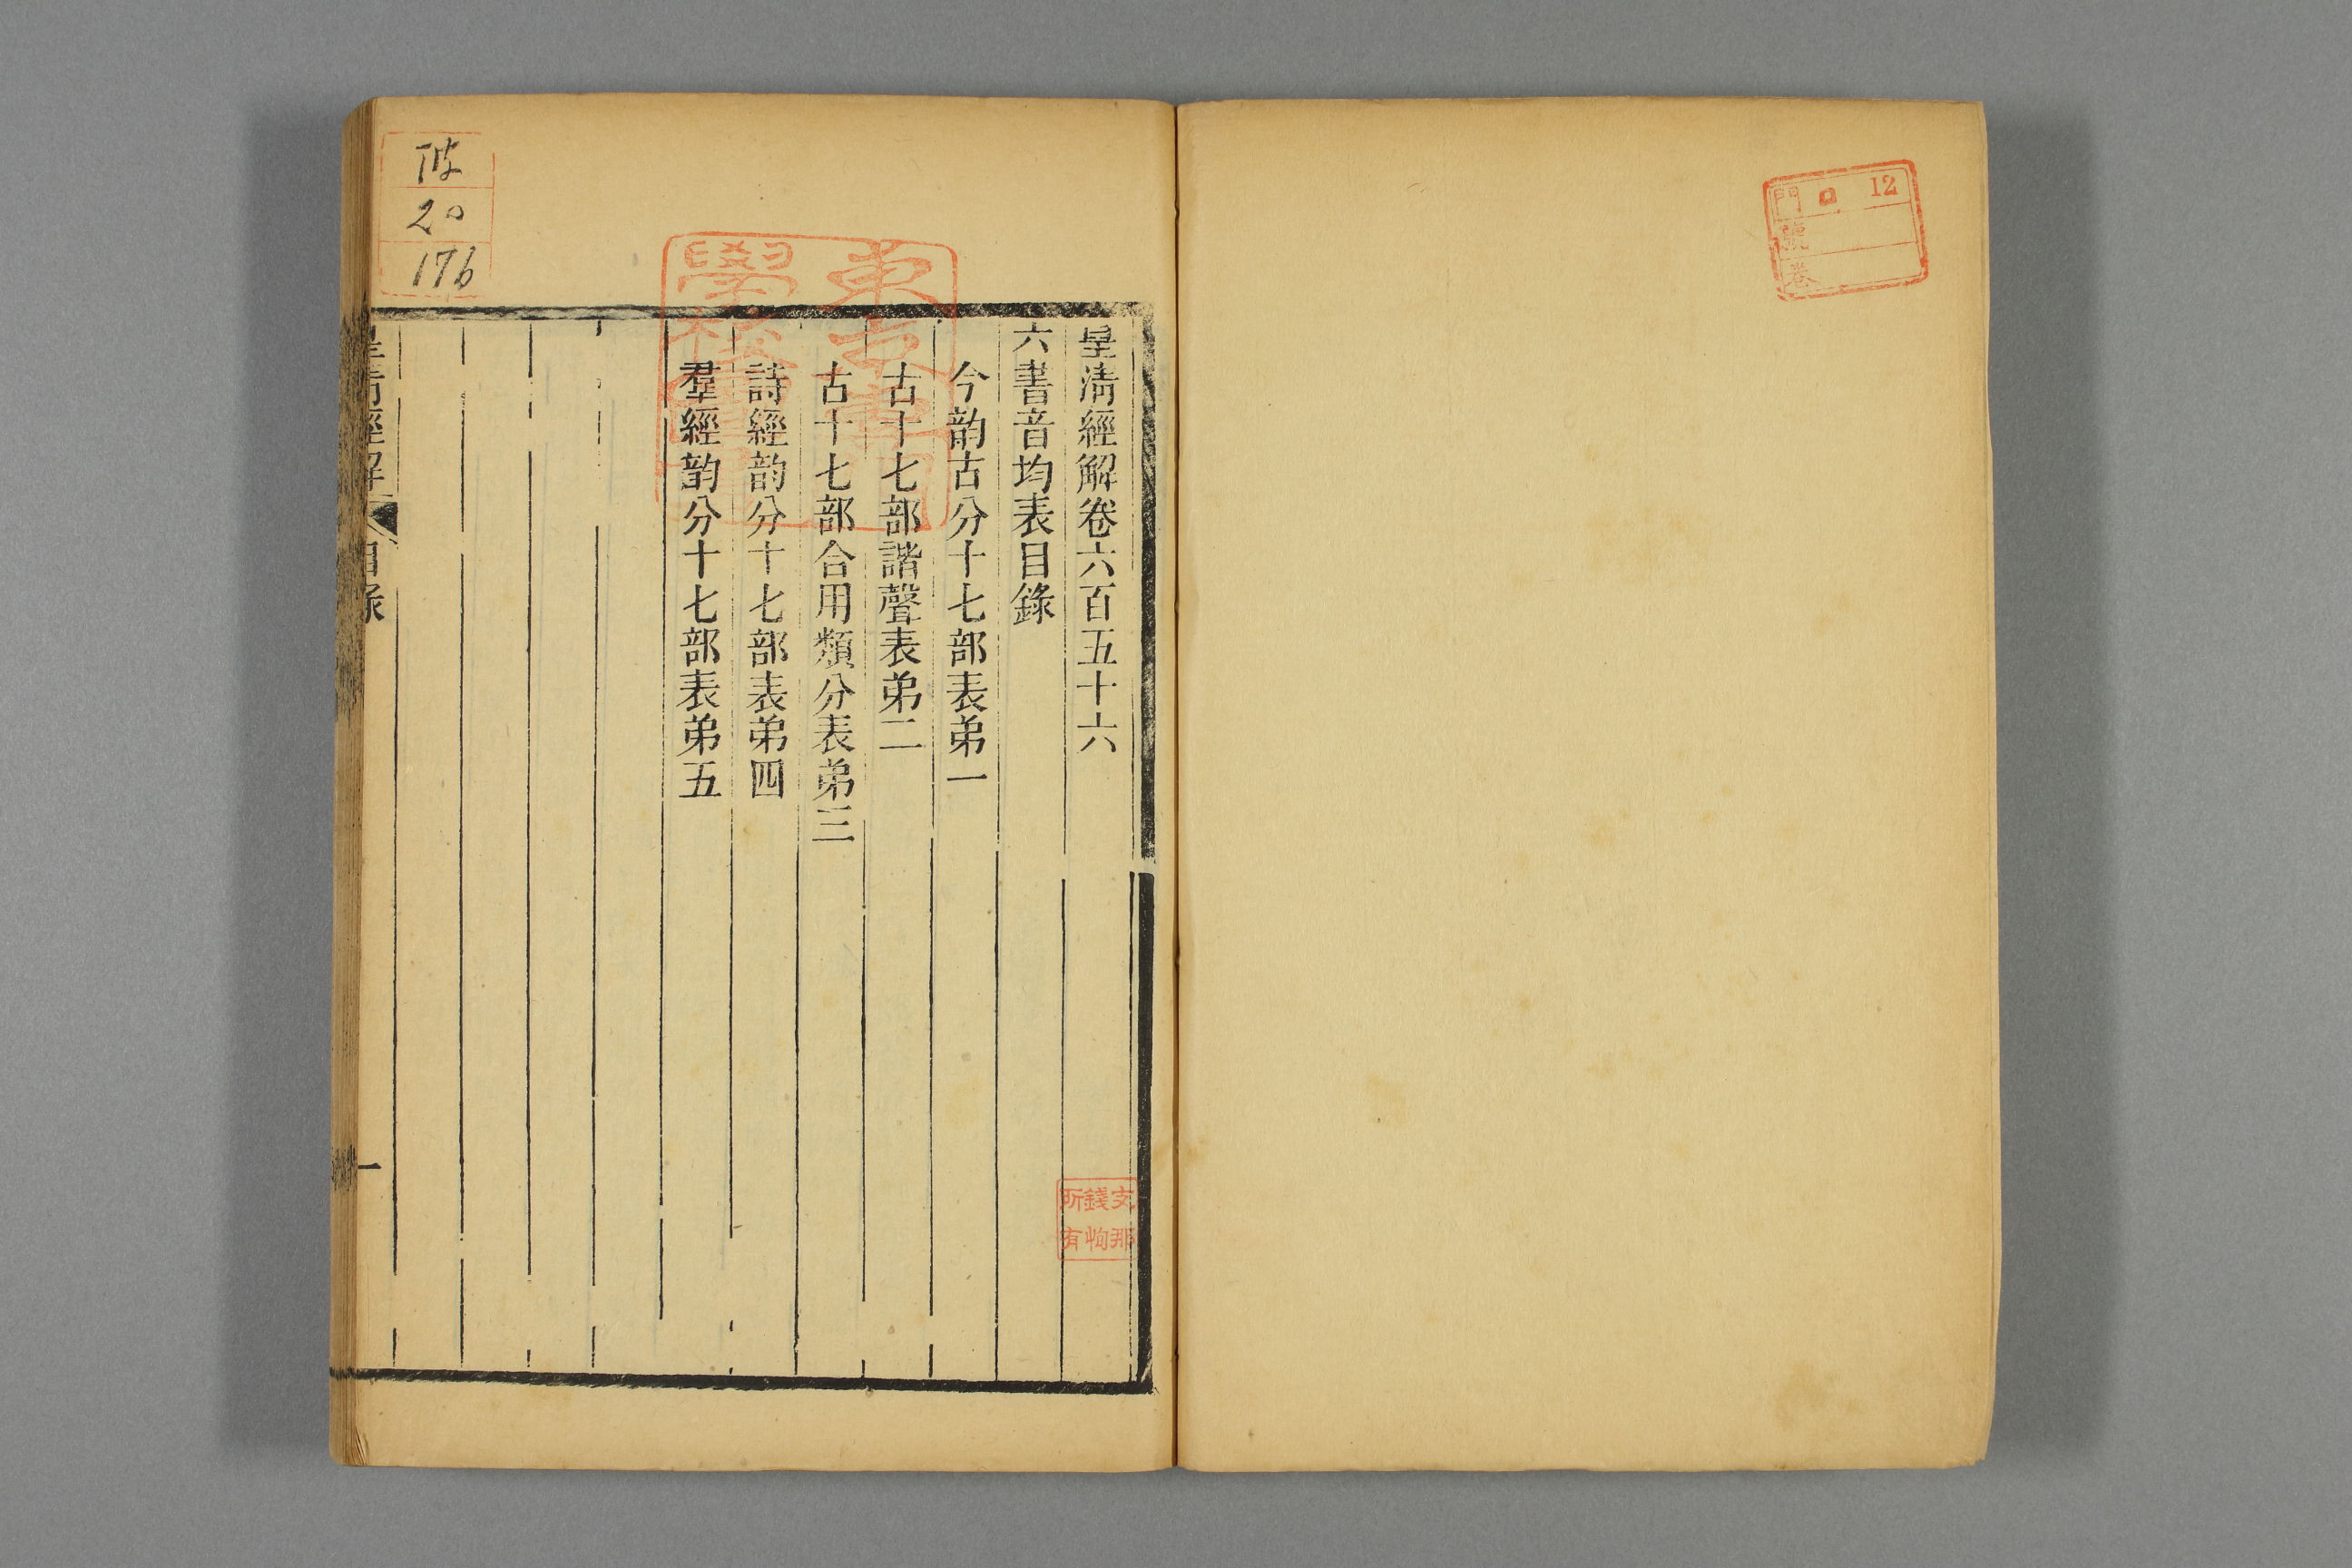 12
門
號
卷
皇清經解卷六百五十六
六書音均表目錄
今韵古分十七部表弟一
古十七部諧聲表弟二
古十七部合用類分表弟三
詩經韵分十七部表弟四
羣經韵分十七部表弟五
皇清經解
目錄
一
20
176
支那
錢恂
所有